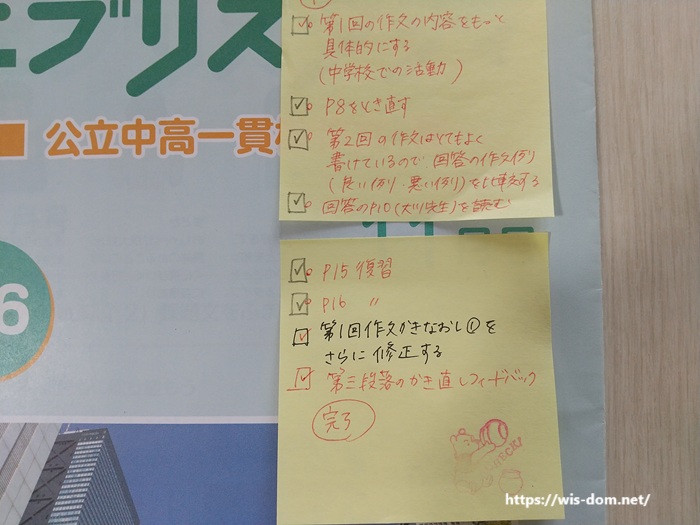 エブリス
公立中高一貫
6
①
第1回の作文の内容をもっと
具体的にする
(中学校での活動)
P8をとき直す
第2回の作文はとてもよく
書けているので 回答の作文例
(良い例・悪い例)を比較する
回答のP10(大川先生)を読む
P15 復習
P16 〃
第1回作文かきなおし①を
さらに修正する
第三段落のかき直しフィードバック
完了
https://wis-dom.net/